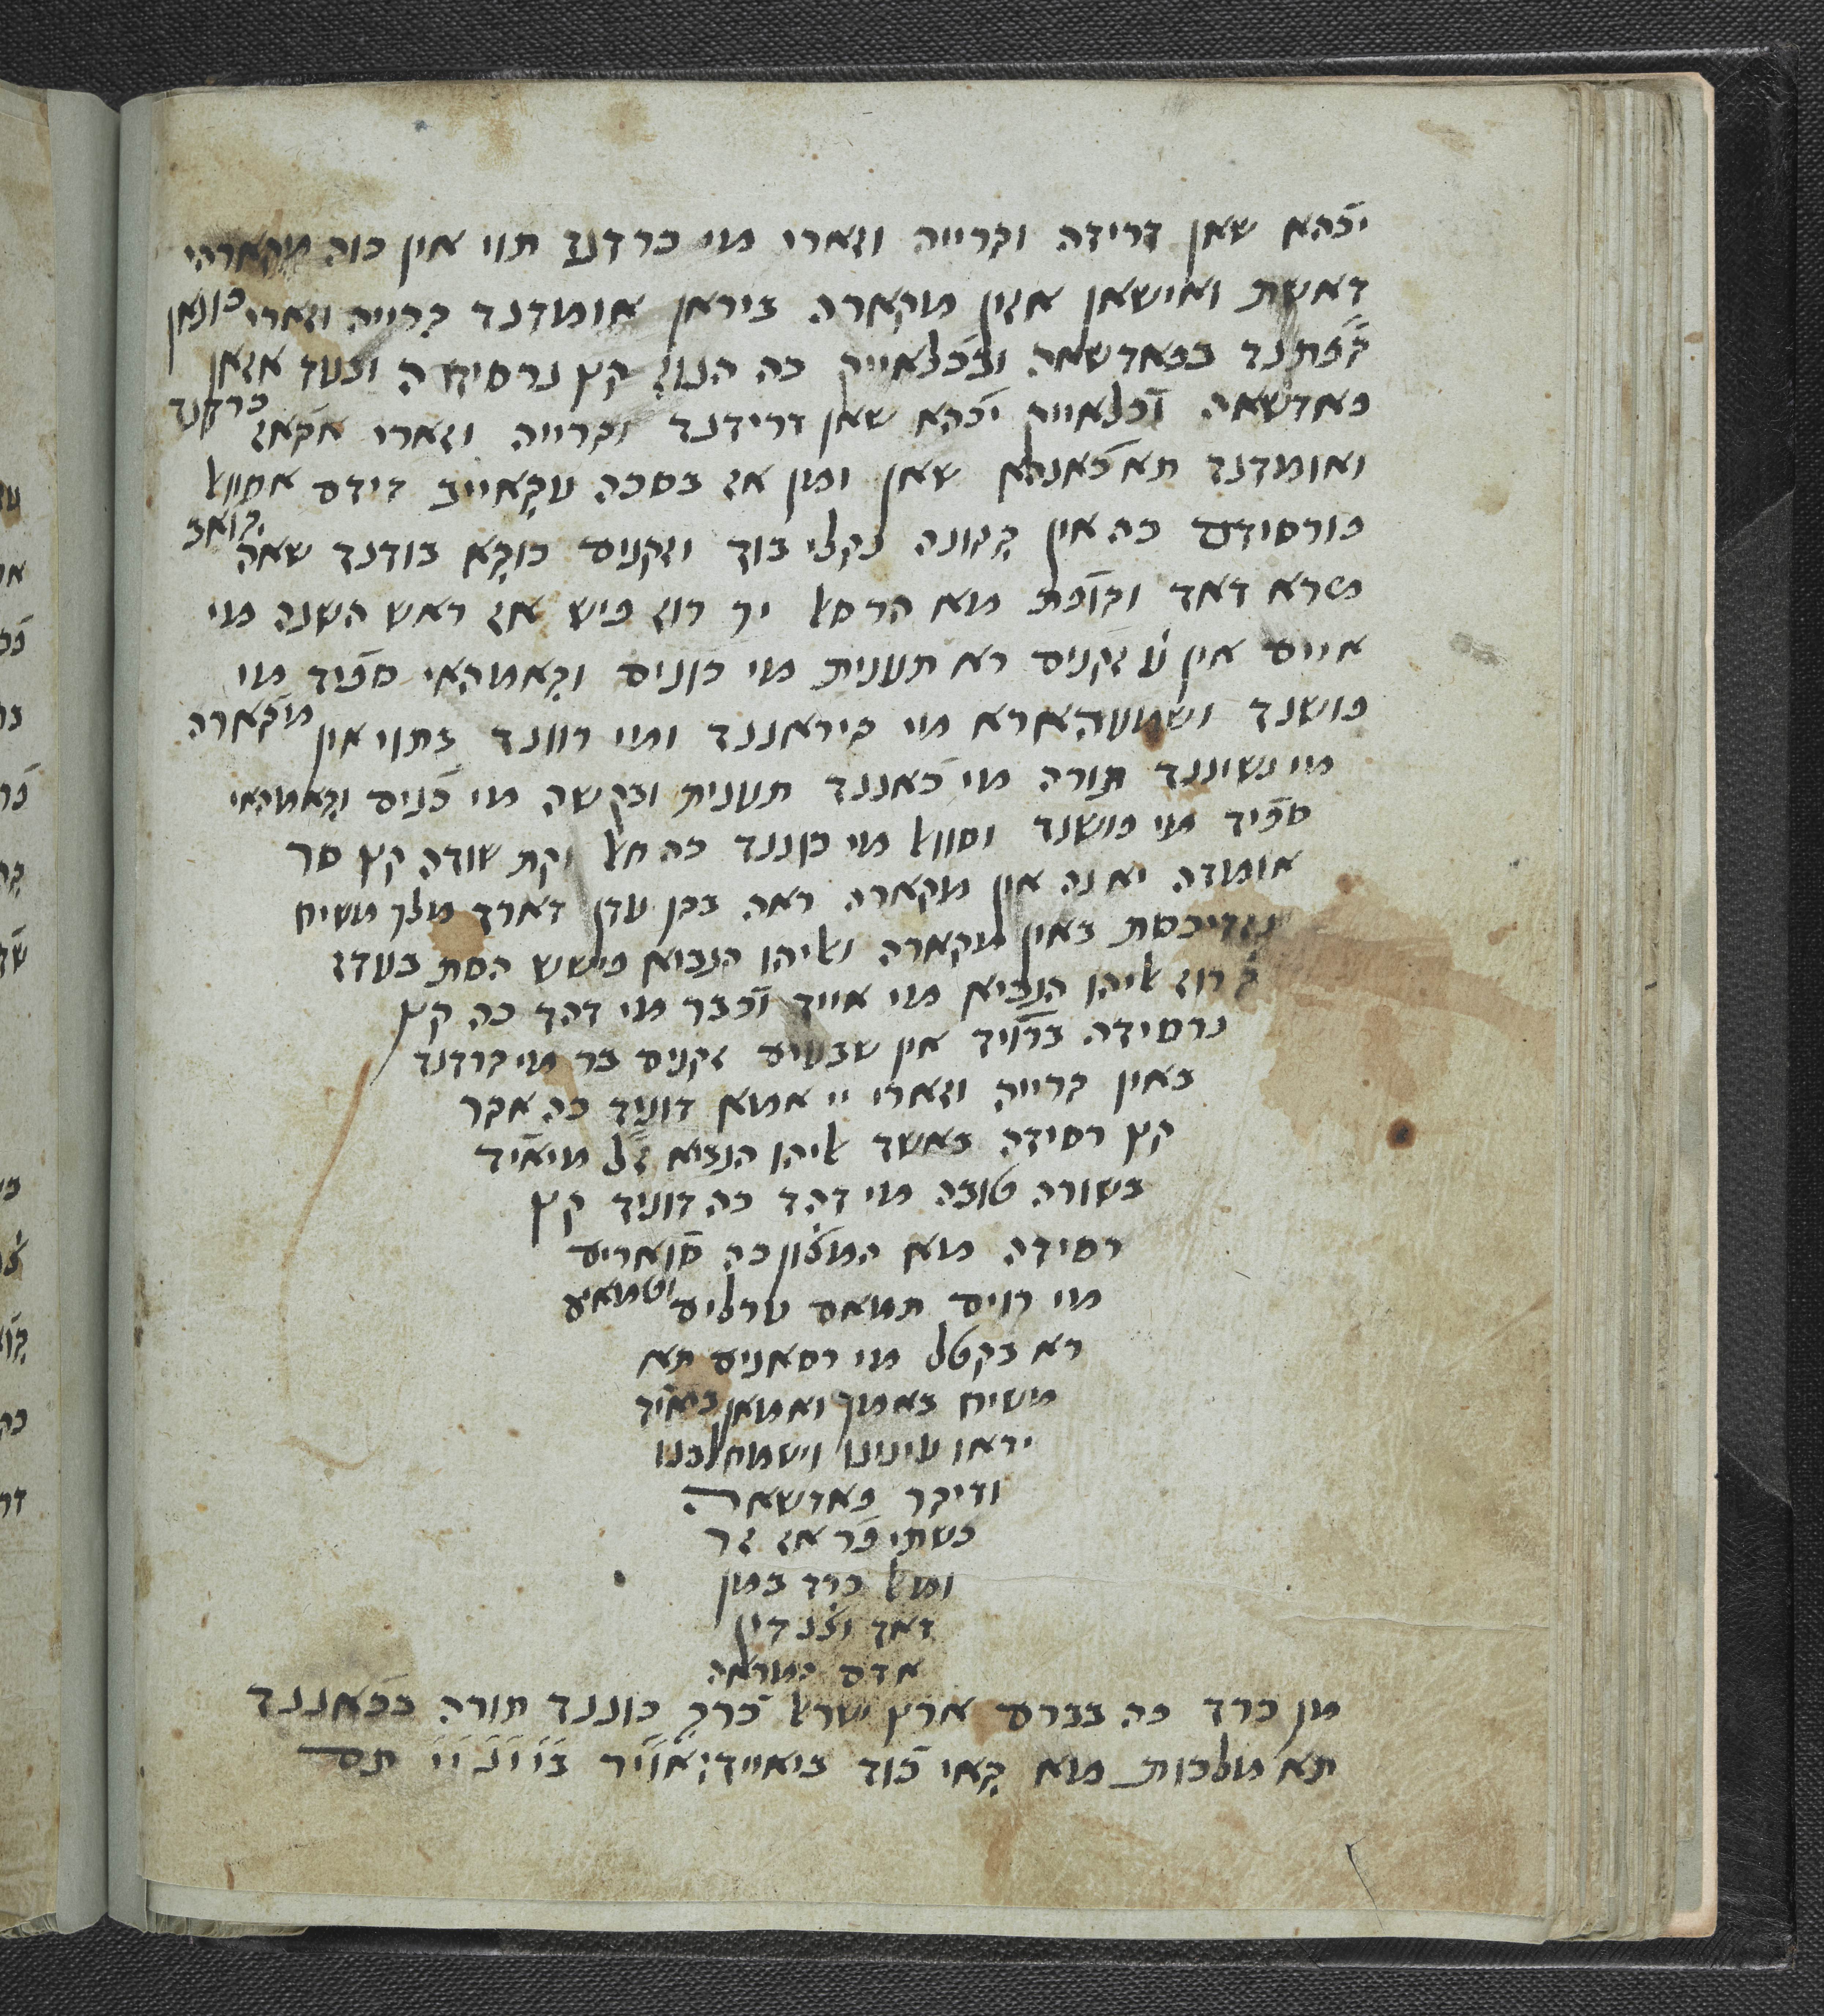 יכהא שאן דרידה וגרייה וזארי מי כרדנד תוי אין כוה מקארהי
דאשת ואישאן אזין מקארה ביראן אומדנד גרייה וזארי כונאן
גפתנד בפאדשאה ובכלאייק כה הנוז קץ נרסידה ובעד אזאן
פאדשאה וכלאייק יכהא שאן דרידנד וגרייה וזארי אקאז כרדנד
ואומדנד תא כאנהא שאן ומן אז בסכה עגאייב דידם אחואל
פורסידם כה אין גגונה נקלי בוד וזקנים כוגא בודנד שאה גואב
מרא דאד וגופת מא הרסאל יך רוז פיש אז ראש השנה מי
איים אין ע זקנים רא תענית מי כונים וגאמהאי ספיד מי
פושנד ושמעהארא מי גיראננד ומי רוונד בתוי אין מקארה
מי נשיננד תורה מי כאננד תענית ובקשה מי כנים וגאמהאי
ספיד מי פושנד וסואל מי כוננד כה חאל וקת שודה קץ סר
אומדה יא נה אין מקארה ראה בגן עדן דארד מלך משיח
נזדיכסת באין מקארה ואליהו הנביא פישש הסת בעדז
ג רוז אליהו הנביא מי אייד וכבר מי דהד כה קץ
נרסידה ברויד אין שבעים זקנים בר מי גרדנד
באין גרייה וזארי יי אמא דוניד כה אגר
קץ רסידה באשד אליהו הנביא זל מיאיד
בשורה טובה מי דהד כה דוניד קץ
רסידה מא המצון כה סואריים
מי רוים תמאם ערלים וטמאים
רא בקטל מי רסאנים תא
משיח באמן ואמאן ביאיד
יראו עינינו וישמח לבנו
ודיגר פאדשאה
כשתי פר אז זר
ומאל כרד במן
דאד וצנדין
אדם המראה
מן כרד כה בברם ארץ ישראל כרג כוננד תורה בכאננד
תא מלכות מא גאי כוד ביאייד׃ תם